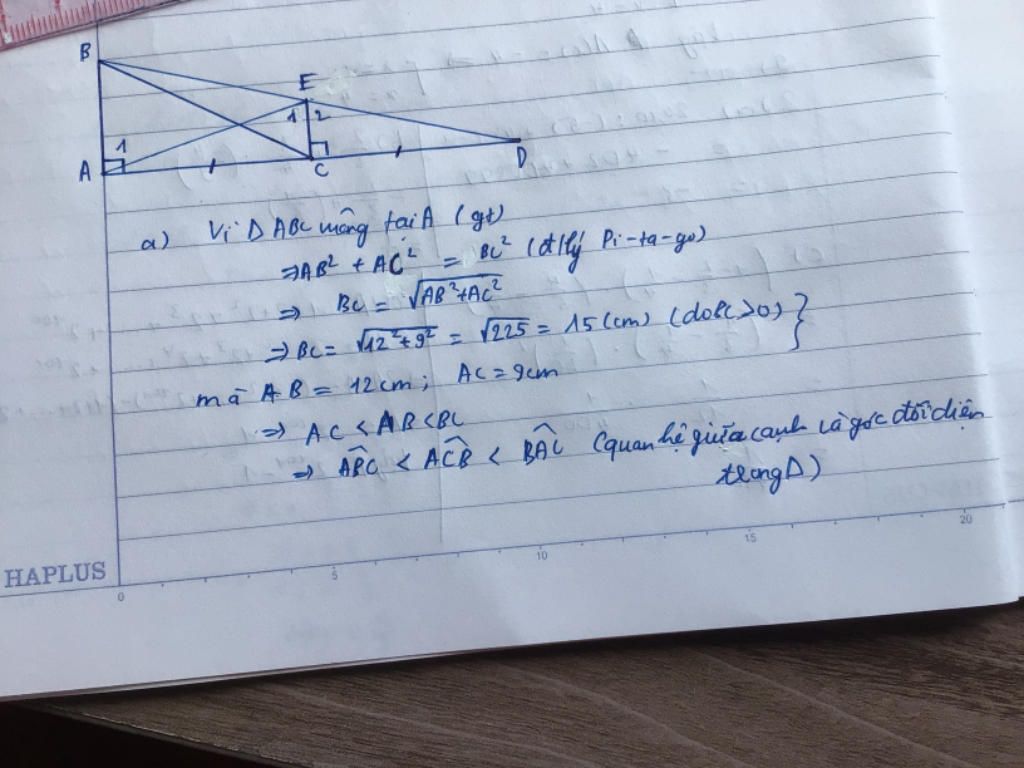 B
E
1 2
1
A
C
D
a) Vì Δ ABC vuông tại A (gt)
⇒ AB² + AC² = BC² (đ/lý Pi-ta-go)
⇒ BC = √AB²+AC²
⇒ BC = √12²+9² = √225 = 15 (cm) (do BC >0) }
mà AB = 12cm; AC = 9cm
⇒ AC < AB < BC
⇒ ABC < ACB < BAC (quan hệ giữa cạnh và góc đối diện
trong Δ)
HAPLUS
0 5 10 15 20